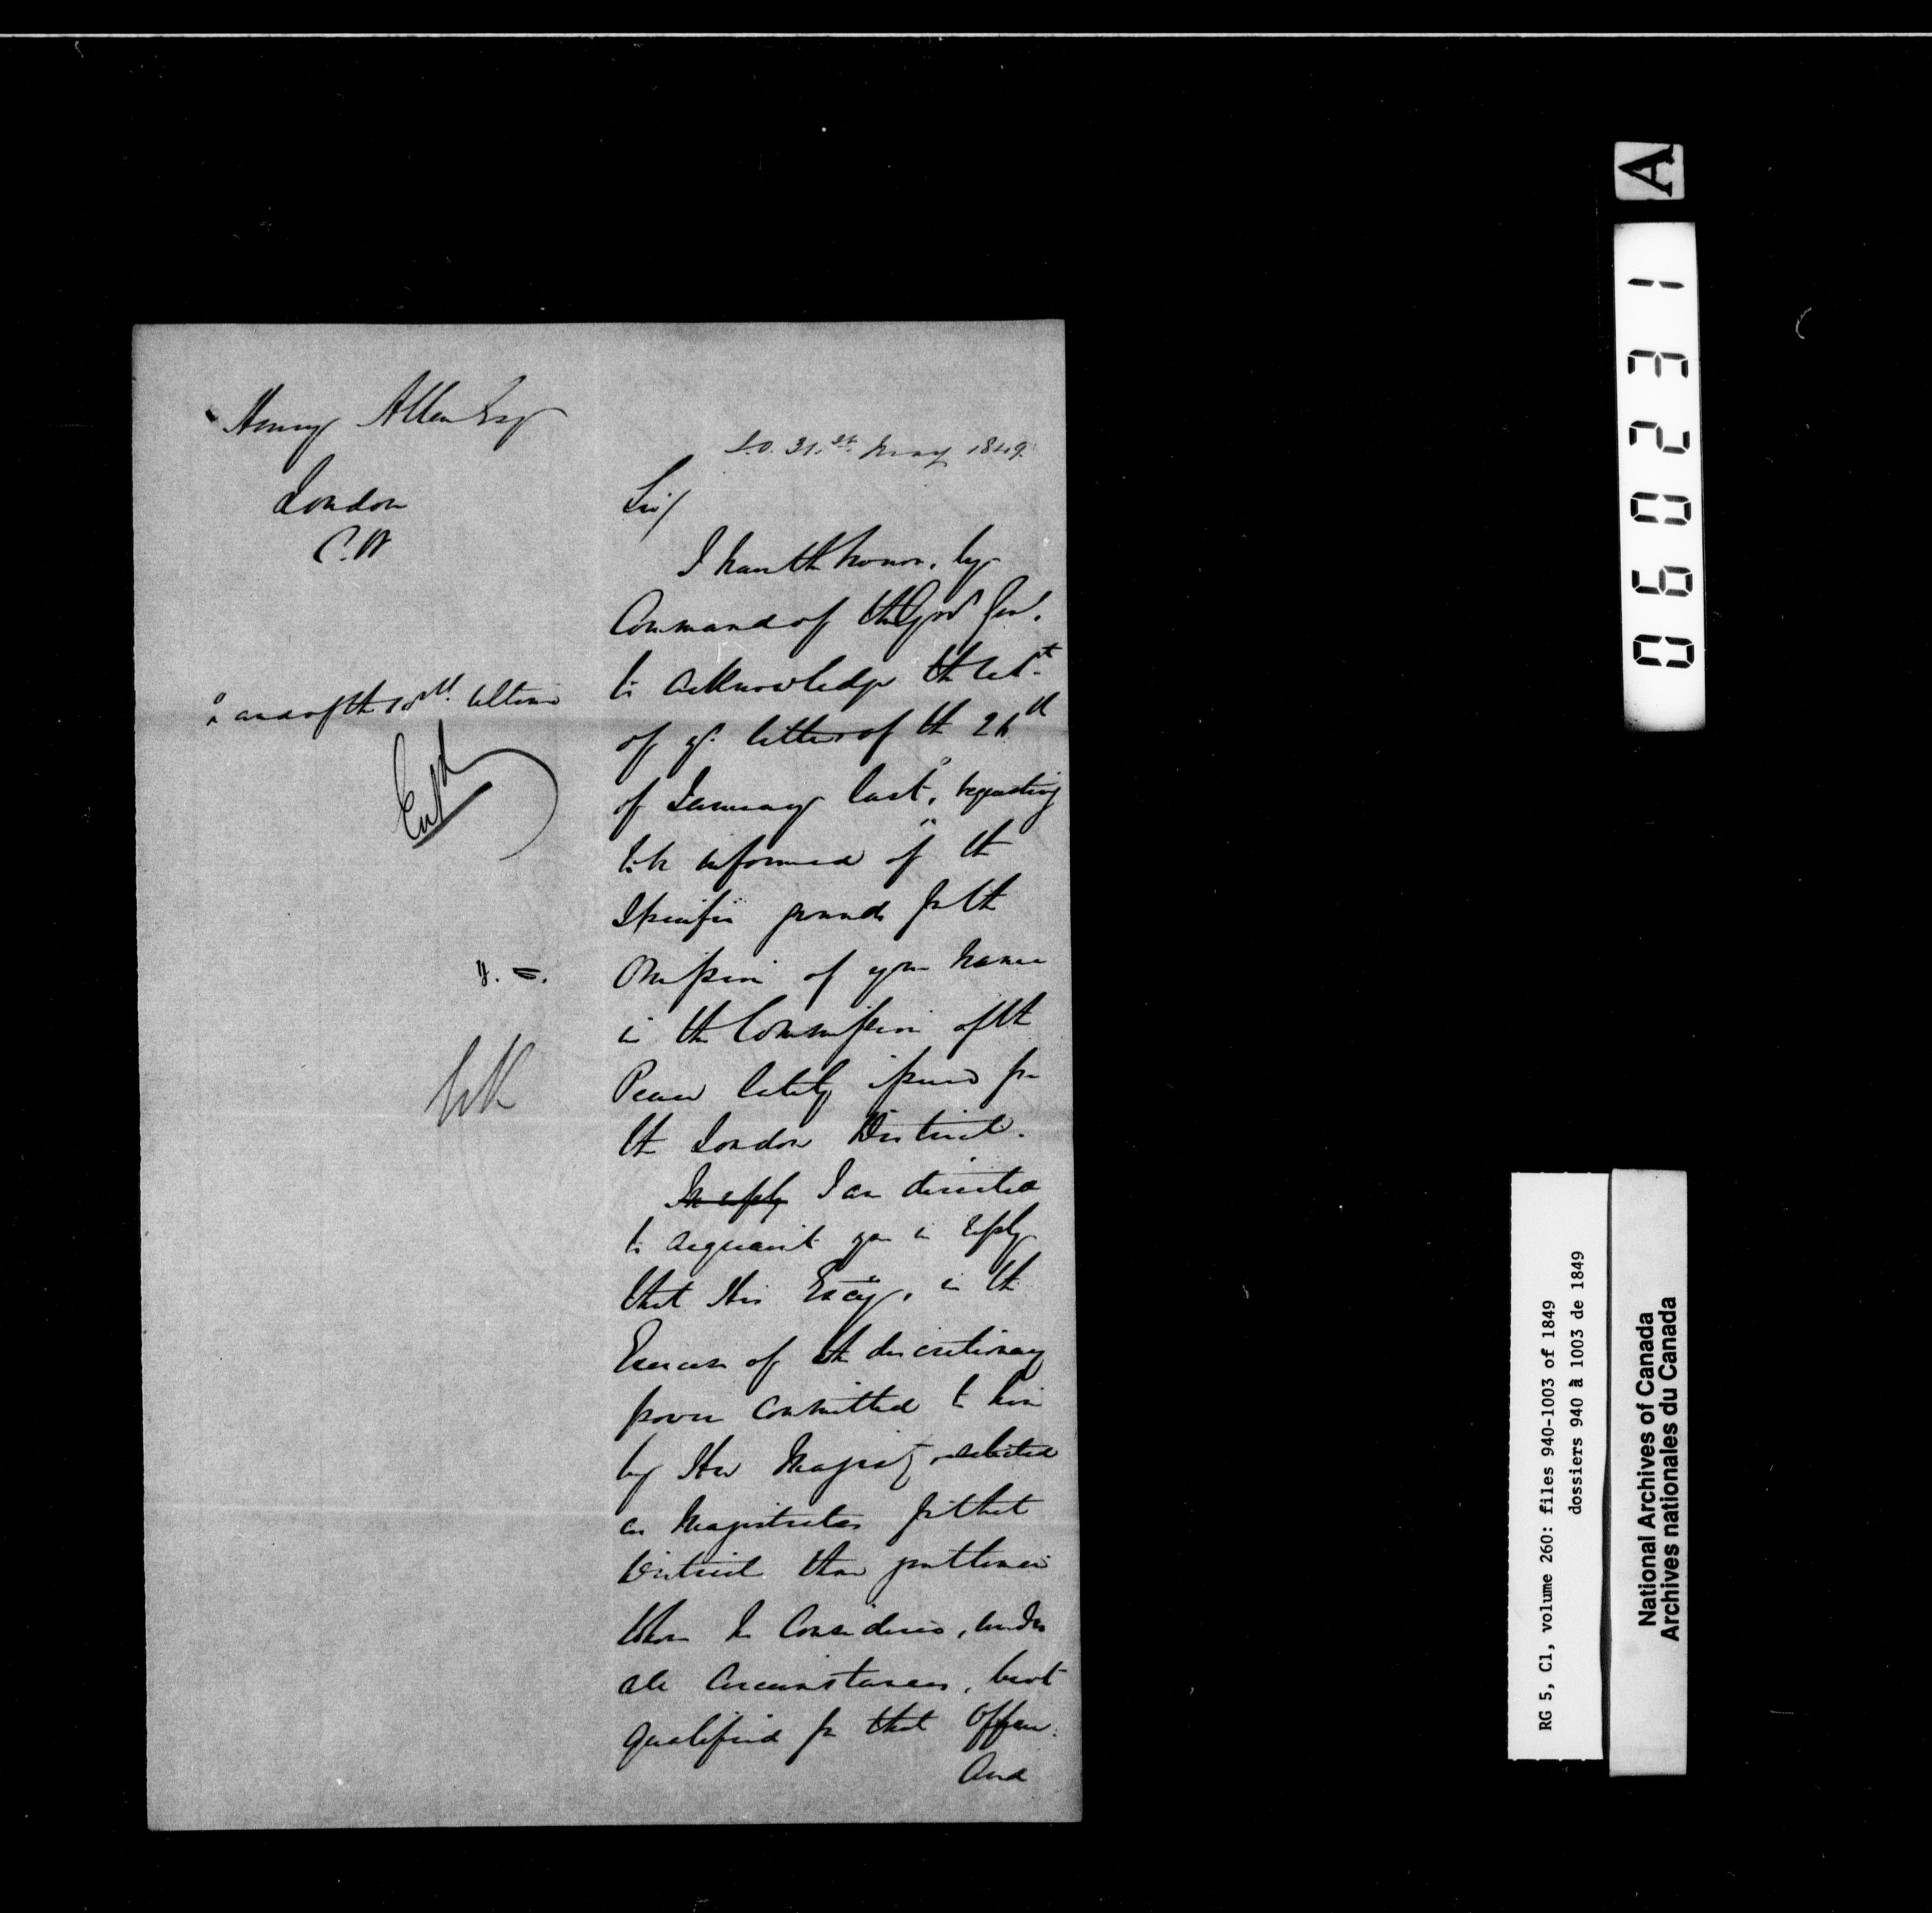 Henry Allen Esq
London
C.W
S.O. 31.st May 1849.
Sir/
I have the honor, by
Command of the Govr Genl.
to acknowledge the rect.
of yr. letters of the 26th
of January last, requesting
to be informed of the
Specific grounds for the
Omission of your name
in the Commission of the
Peace lately issued for
the London District.
In reply I am directed
to acquaint you in reply
that His Excy, in the
Exercise of the discretionary
power committed to him
by Her Majesty selected
as Magistrates for that
District those gentlemen
whom he considered, under
all circumstances, best
qualified for that Office.
And
o and of the 18th Ultimo
Entd
A
060231
RG 5, C1, volume 260: files 940-1003 of 1849
dossiers 940 à 1003 de 1849
National Archives of Canada
Archives nationales du Canada